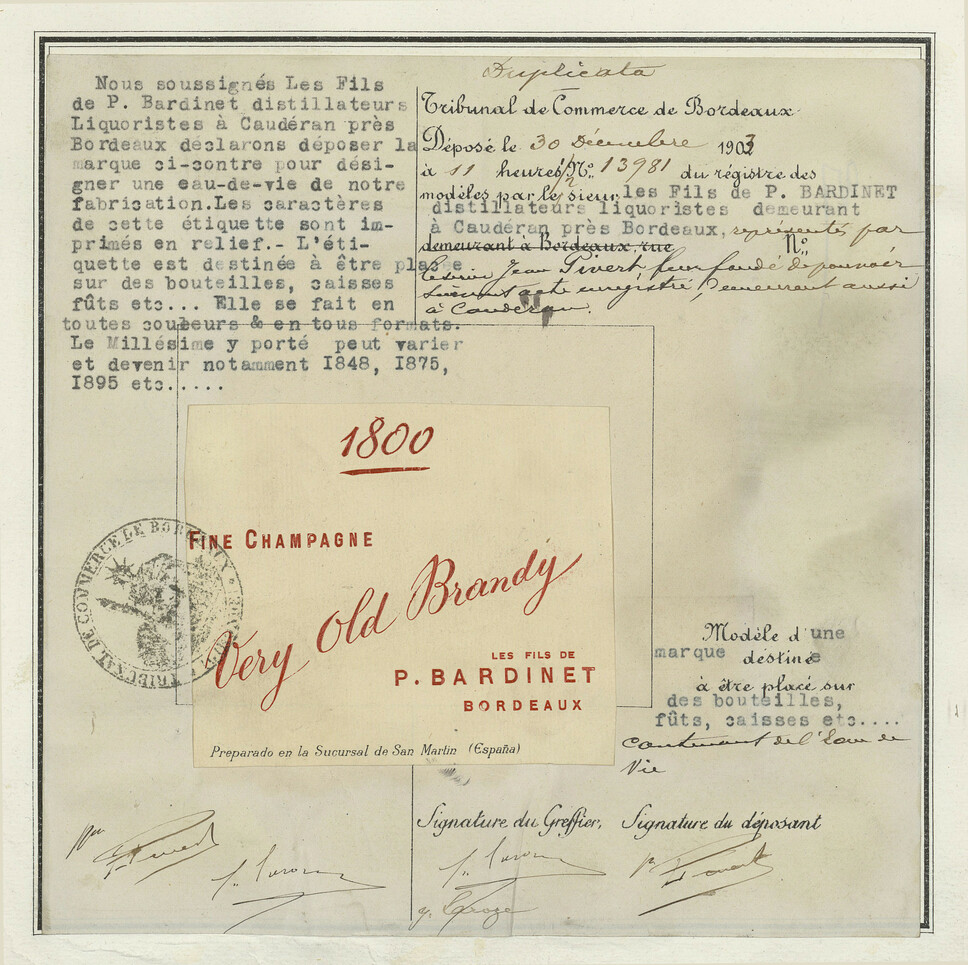 Nous soussignés Les Fils
de P. Bardinet distillateurs
Liquoristes à Caudéran près
Bordeaux déclarons déposer la
marque ci-contre pour dési-
gner une eau-de-vie de notre
fabrication.Les caractères
de cette étiquette sont im-
primés en relief.- L'éti-
quette est destinée à être placée
sur des bouteilles, caisses
fûts etc... Elle se fait en
toutes couleurs & en tous formats.
Le Millésime y porté peut varier
et devenir notamment I848, I875,
I895 etc.....
Duplicata
Tribunal de Commerce de Bordeaux
Déposé le 30 Décembre 1903
à 11 heures 1/2 No. 13981 du régistre des
modèles par le sieur les Fils de P. BARDINET
distillateurs liquoristes demeurant
à Caudéran près Bordeaux, représenté par
demeurant à Bordeaux, rue No.
Jean Pivert fondé de pouvoir
suivant acte enregistré, demeurant aussi
à Caudéran.
1800
FINE CHAMPAGNE
Very Old Brandy
LES FILS DE
P. BARDINET
BORDEAUX
Preparado en la Sucursal de San Martin (España)
TRIBUNAL DE COMMERCE DE BORDEAUX
Modèle d'une
marque destiné e
à être placé sur
des bouteilles,
fûts, caisses etc....
contenant de l'Eau de
Vie
Signature du Greffier,
Signature du déposant